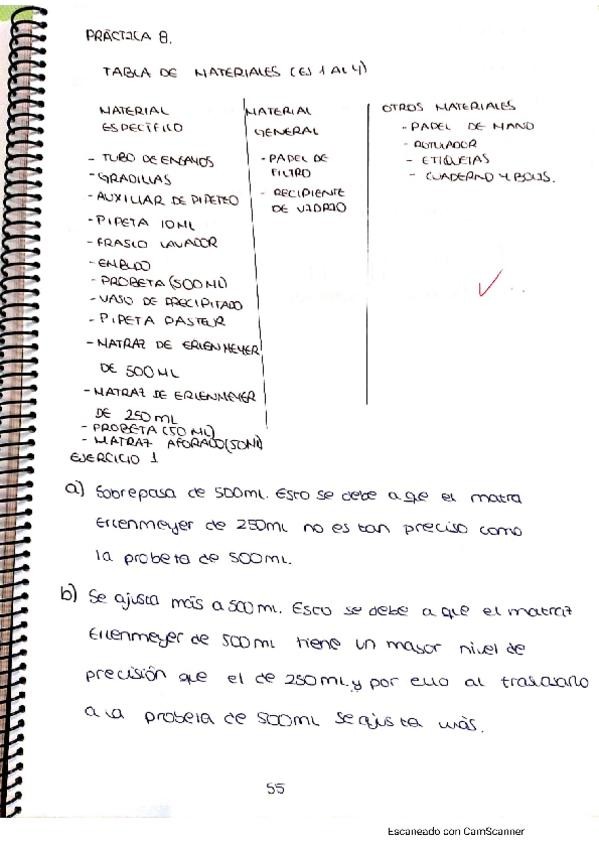 PRÁCTICA 8.
TABLA DE MATERIALES (EJ 1 AL 4)
MATERIAL
ESPECÍFICO
- TUBO DE ENSAYOS
- GRADILLAS
- AUXILIAR DE PIPETEO
- PIPETA 10ML
- FRASCO LAVADOR
- EMBUDO
- PROBETA (500ML)
- VASO DE PRECIPITADO
- PIPETA PASTEUR
- MATRAZ DE ERLENMEYER
DE 500ML
- MATRAZ DE ERLENMEYER
DE 250ML
- PROBETA (50ML)
- MATRAZ AFORADO (50ML)
MATERIAL
GENERAL
- PAPEL DE
FILTRO
- RECIPIENTE
DE VIDRIO
OTROS MATERIALES
- PAPEL DE MANO
- ROTULADOR
- ETIQUETAS
- CUADERNO Y BOLIS.
EJERCICIO 1
a) Sobrepasa de 500ml. Esto se debe a qe el matra
Erlenmeyer de 250ml no es tan preciso como
la probeta de 500ml.
b) Se ajusta más a 500ml. Esto se debe a que el matraz
Erlenmeyer de 500ml tiene un mayor nivel de
precisión que el de 250ml y por ello al trasvasarlo
a la probeta de 500ml se ajusta más.
55
Escaneado con CamScanner